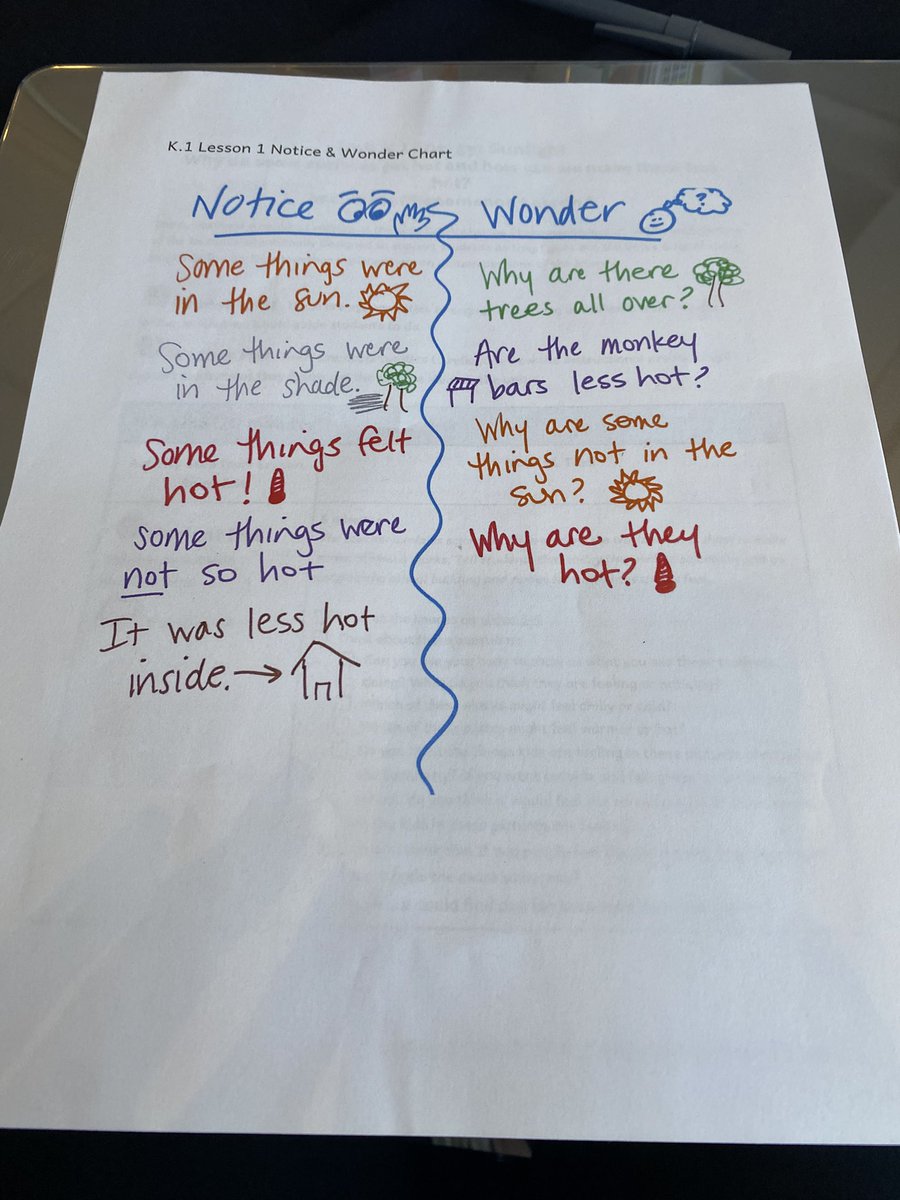 K.1 Lesson 1 Notice & Wonder Chart
Notice
Some things were
in the sun.
Some things were
in the shade.
Some things felt
hot!
some things were
not so hot
It was less hot
inside.
Wonder
?
Why are there
trees all over?
Are the monkey
bars less hot?
Why are some
things not in the
sun?
Why are they
hot?